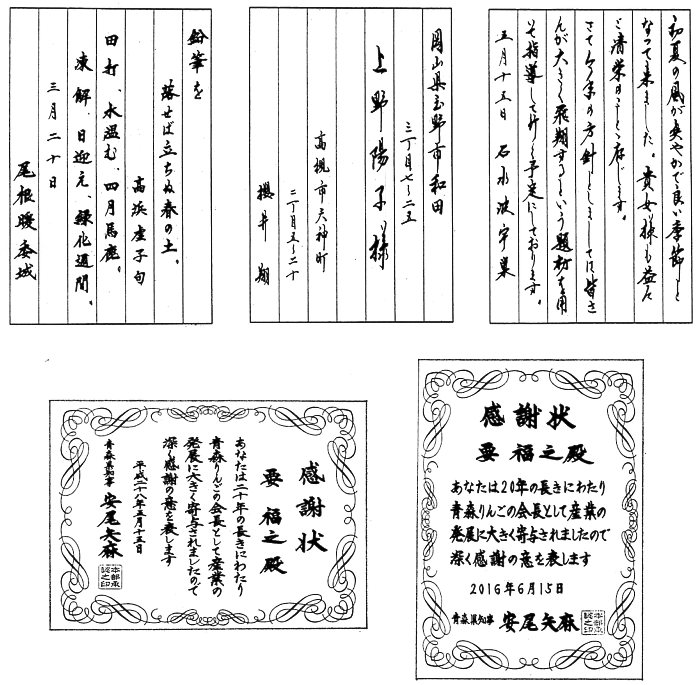 初夏の風が爽やかで良い季節と
なって来ました。貴女様も益々
ご清栄のことゝ存じます。
さて今年の方針としましては皆さ
んが大きく飛翔するという題材を用
いて指導して行く予定にしております。
五月十五日 石水波宇巣
岡山県玉野市和田
三丁目七ー二五
上野陽子様
高槻市天神町
二丁目五ー二十
櫻井 翔
鉛筆を
落せば立ちぬ春の土。
高浜虚子句
田打、水温む、四月馬鹿。
凍解、日迎え、緑化週間。
三月二十日
尾根暖委城
感謝状
要 福之殿
あなたは二十年の長きにわたり
青森りんごの会長として産業の
発展に大きく寄与されましたので
深く感謝の意を表します
平成二八年五月十五日
青森県知事 安尾矢麻
感謝状
要 福之殿
あなたは20年の長きにわたり
青森りんごの会長として産業の
発展に大きく寄与されましたので
深く感謝の意を表します
2016年6月15日
青森県知事 安尾矢麻